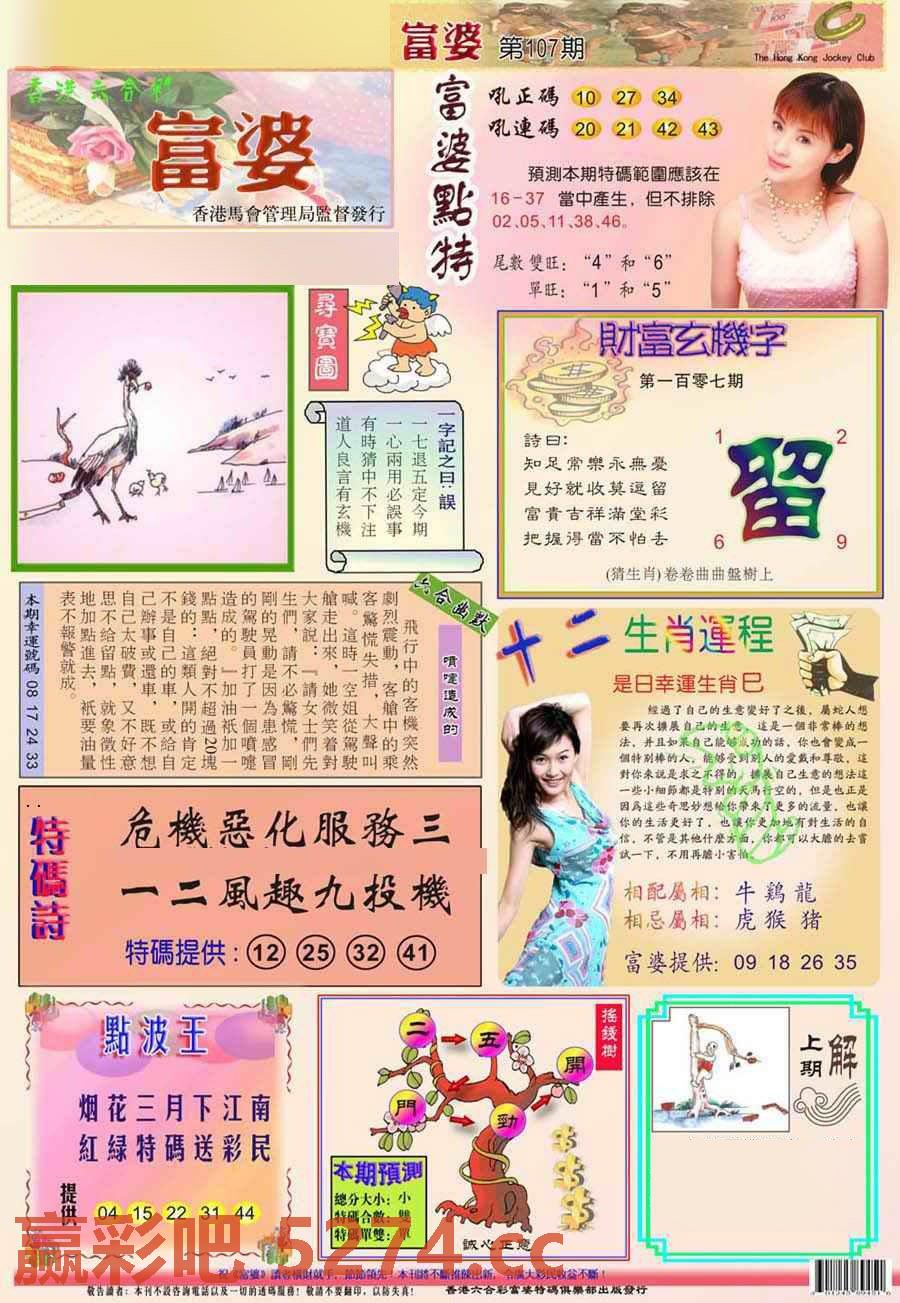 富婆 第107期
The Hong Kong Jockey Club
香港六合彩
富婆
香港馬會管理局監督發行
富婆點特
吼正碼 10 27 34
吼連碼 20 21 42 43
預測本期特碼範圍應該在
16-37 當中產生，但不排除
02、05、11、38、46。
尾數雙旺：“4”和“6”
單旺：“1”和“5”
尋寶圖
一字記之曰：誤
一七退五定今期
一心兩用必誤事
有時猜中不下注
道人良言有玄機
財富玄機字
第一百零七期
詩曰：
知足常樂永無憂
見好就收莫逗留
富貴吉祥滿堂彩
把握得當不怕丟
1 2
留
6 9
(猜生肖)卷卷曲曲盤樹上
六合幽默
噴嚏造成的
飛行中的客機突然
劇烈震動，客艙中的乘
客驚慌失措，大聲叫
喊。這時一空姐從駕駛
艙走出來，她微笑着對
大家說：『請女士們先
生們，請不必驚慌，剛
剛的晃動是因為患感冒
的駕駛員打了一個噴嚏
造成的。』加油祇加一
點點，絕對不超過20塊
錢的：這類人開的肯定
不是自己的車，或給自
己辦事或還車，既不想
自己太破費，又不好意
思不給留點，就象徵性
地加點進去，祇要油量
表不報警就成。
本期幸運號碼 08 17 24 33
十二生肖運程
是日幸運生肖巳
經過了自己的生意變好了之後，屬蛇人想
要再次擴展自己的生意，這是一個非常棒的想
法，并且如果自己能够成功的話，你也會變成一
個特別棒的人，能够受到別人的愛戴和尊敬，這
對你來說是求之不得的，擴展自己生意的想法這
一些小細節都是特別的天馬行空的，但是也正是
因爲這些奇思妙想給你帶來了更多的流量，也讓
你的生活更好了，也讓你更加地有對生活的自
信，不管是其他什麼方面，你都可以大膽的去嘗
試一下，不用再膽小害怕。
相配屬相：牛 鷄 龍
相忌屬相：虎 猴 猪
富婆提供：09 18 26 35
特碼詩
危機惡化服務三
一二風趣九投機
特碼提供：12 25 32 41
點波王
烟花三月下江南
紅緑特碼送彩民
提供 04 15 22 31 44
搖錢樹
二 五 開 門 勁
本期預測
總分大小：小
特碼合數：雙
特碼單雙：單
誠心正意
上期解
赢彩吧 5274.cc
祝《富婆》讀者横財就手，節節領先！本刊將不斷推陳出新，令廣大彩民收益不斷！
敬告讀者：本刊不設咨詢電話以及一切的透碼服務！敬請不要翻印，以防失真！
香港六合彩富婆特碼俱樂部出版發行